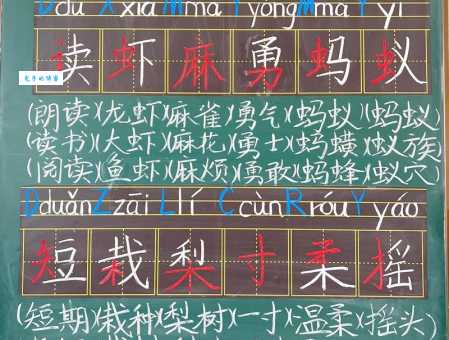 D dú X xiā M má Y yǒng M mǎ Y yǐ
读虾麻勇蚂蚁
(朗读)(龙虾)(麻雀)(勇气)(蚂蚁)(蚂蚁)
(读书)(大虾)(麻花)(勇士)(蚂蟥)(蚁族)
(阅读)(鱼虾)(麻烦)(勇敢)(蚂蜂)(蚁穴)
D duǎn Z zāi L lí C cùn R róu Y yáo
短栽梨寸柔摇
(短期)(栽种)(梨树)(一寸)(温柔)(摇头)